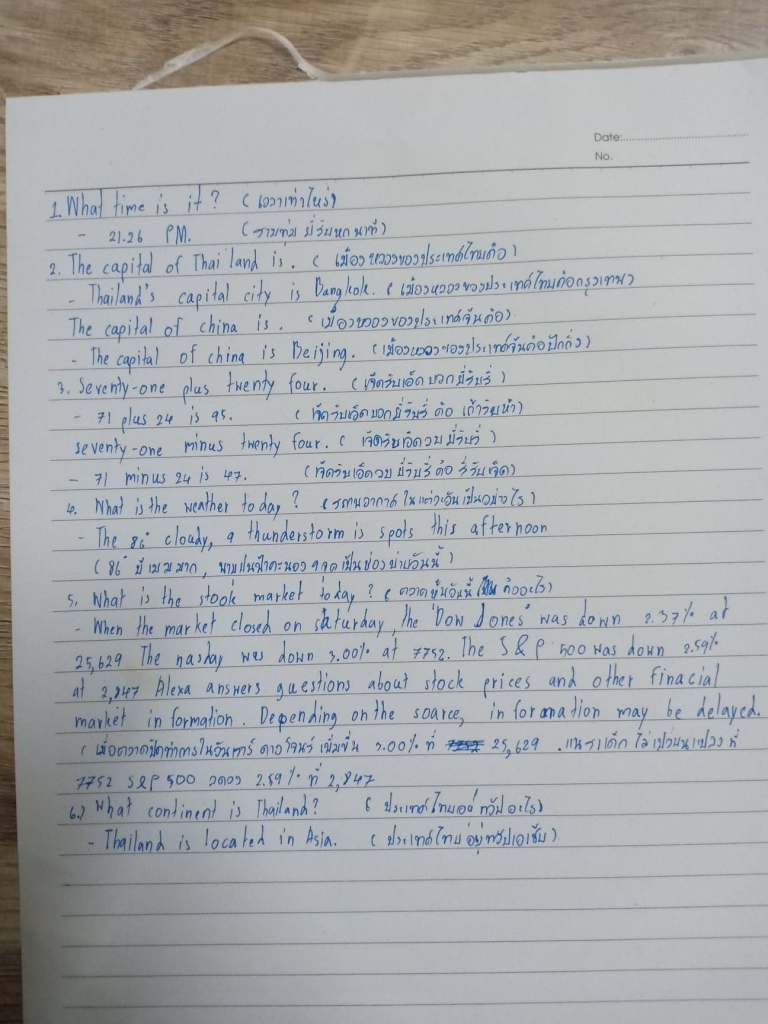 Date:
No.
1. What time is it? (เวลาเท่าไหร่)
- 21.26 PM. (สามทุ่ม ยี่สิบหกนาที)
2. The capital of Thailand is. (เมืองหลวงของประเทศไทยคือ)
- Thailand's capital city is Bangkok. (เมืองหลวงของประเทศไทยคือกรุงเทพ)
The capital of china is. (เมืองหลวงของประเทศจีนคือ)
- The capital of china is Beijing. (เมืองหลวงของประเทศจีนคือปักกิ่ง)
3. Seventy-one plus twenty four. (เจ็ดสิบเอ็ดบวกยี่สิบสี่)
- 71 plus 24 is 95. (เจ็ดสิบเอ็ดบวกยี่สิบสี่ คือ เก้าสิบห้า)
seventy-one minus twenty four. (เจ็ดสิบเอ็ดลบ ยี่สิบสี่)
- 71 minus 24 is 47. (เจ็ดสิบเอ็ดลบ ยี่สิบสี่ คือ สี่สิบเจ็ด)
4. What is the weather today? (สภาพอากาศในแต่ละวันเป็นอย่างไร)
- The 86° cloudy, a thunderstorm is spots this afternoon
(86° มีเมฆมาก, พายุฝนฟ้าคะนอง เป็นช่วงบ่ายวันนี้)
5. What is the stook market today? (ตลาดหุ้นวันนี้ คืออะไร)
- When the market closed on saturday, the "Dow Jones" was down 2.37% at
25,629 The nasday was down 3.00% at 7752. The S&P 500 was down 2.59%
at 2,847 Alexa answers questions about stock prices and other finacial
market information. Depending on the soarce, information may be delayed.
(เมื่อตลาดปิดทำการในวันเสาร์ ดาวโจนส์ เพิ่มขึ้น 3.00% ที่ 25,629 . แนสแด็ก ไม่เปลี่ยนแปลง ที่
7752 S&P 500 ลดลง 2.59% ที่ 2,847
6.) What continent is Thailand? (ประเทศไทยอยู่ทวีปอะไร)
- Thailand is located in Asia. (ประเทศไทยอยู่ทวีปเอเชีย)